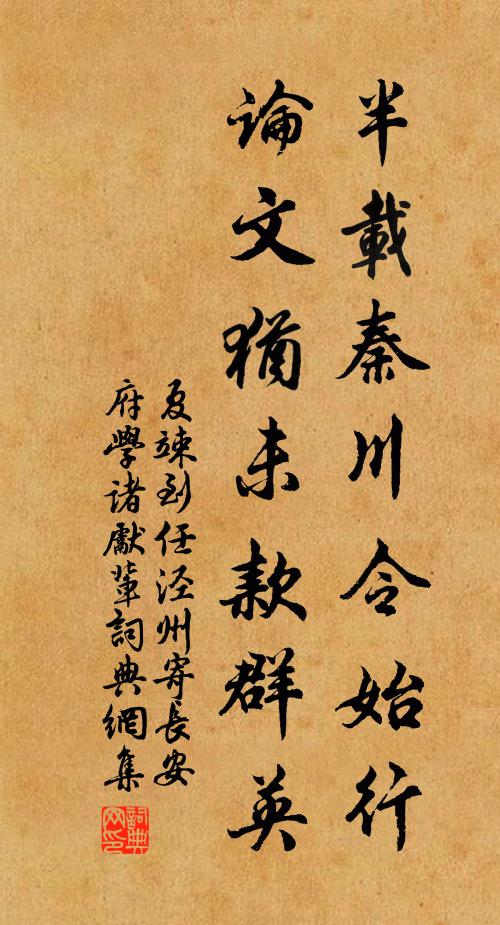 半載秦川令始行
論文猶未款群英
夏竦到任涇州寄長安
府學诸獻輩詞典網集
詞典
网印